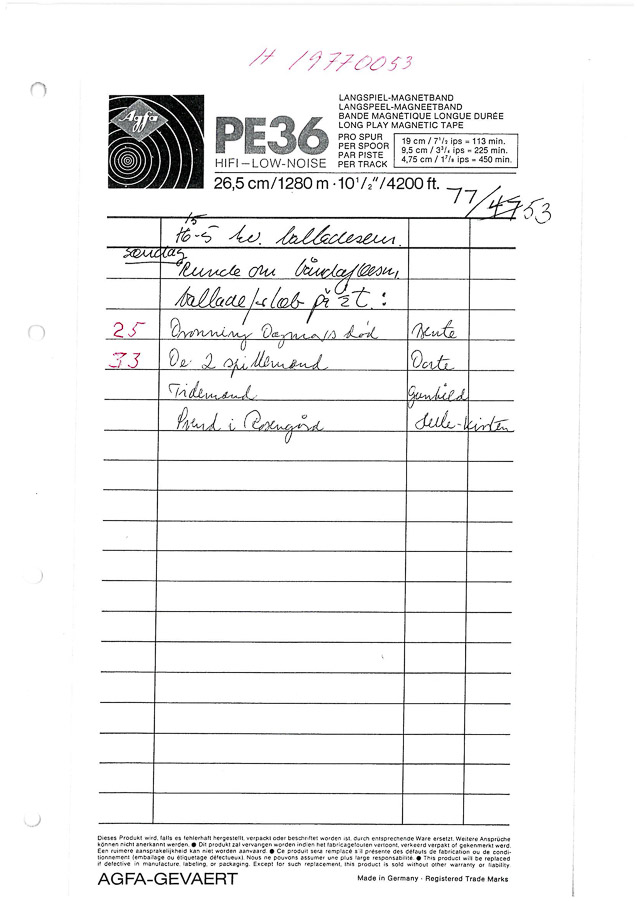 H 19770053
Agfa
PE36
HIFI–LOW–NOISE
LANGSPIEL-MAGNETBAND
LANGSPEEL-MAGNEETBAND
BANDE MAGNÉTIQUE LONGUE DURÉE
LONG PLAY MAGNETIC TAPE
PRO SPUR
PER SPOOR
PAR PISTE
PER TRACK
19 cm / 7½ ips = 113 min.
9,5 cm / 3¾ ips = 225 min.
4,75 cm / 1⅞ ips = 450 min.
26,5 cm/1280 m · 10½"/4200 ft.
77/4753
15
16-5 balladesem.
søndag
Runde om
ballade på et :
25 Dronning Dagmars død
33 De 2 spillemænd Dorte
Tidemand Gunhild
Svend i Rosengård Kirsten
Dieses Produkt wird, falls es fehlerhaft hergestellt, verpackt oder beschriftet worden ist, durch entsprechende Ware ersetzt. Weitere Ansprüche
können nicht anerkannt werden. ● Dit produkt zal vervangen worden indien het fabricagefouten vertoont, verkeerd verpakt of gekenmerkt werd.
Een ruimere aansprakelijkheid kan niet worden aanvaard. ● Ce produit sera remplacé s'il présente des défauts de fabrication ou de condi-
tionnement (emballage ou étiquetage défectueux). Nous ne pouvons assumer une plus large responsabilité. ● This product will be replaced
if defective in manufacture, labeling, or packaging. Except for such replacement, this product is sold without other warranty or liability.
AGFA-GEVAERT
Made in Germany · Registered Trade Marks